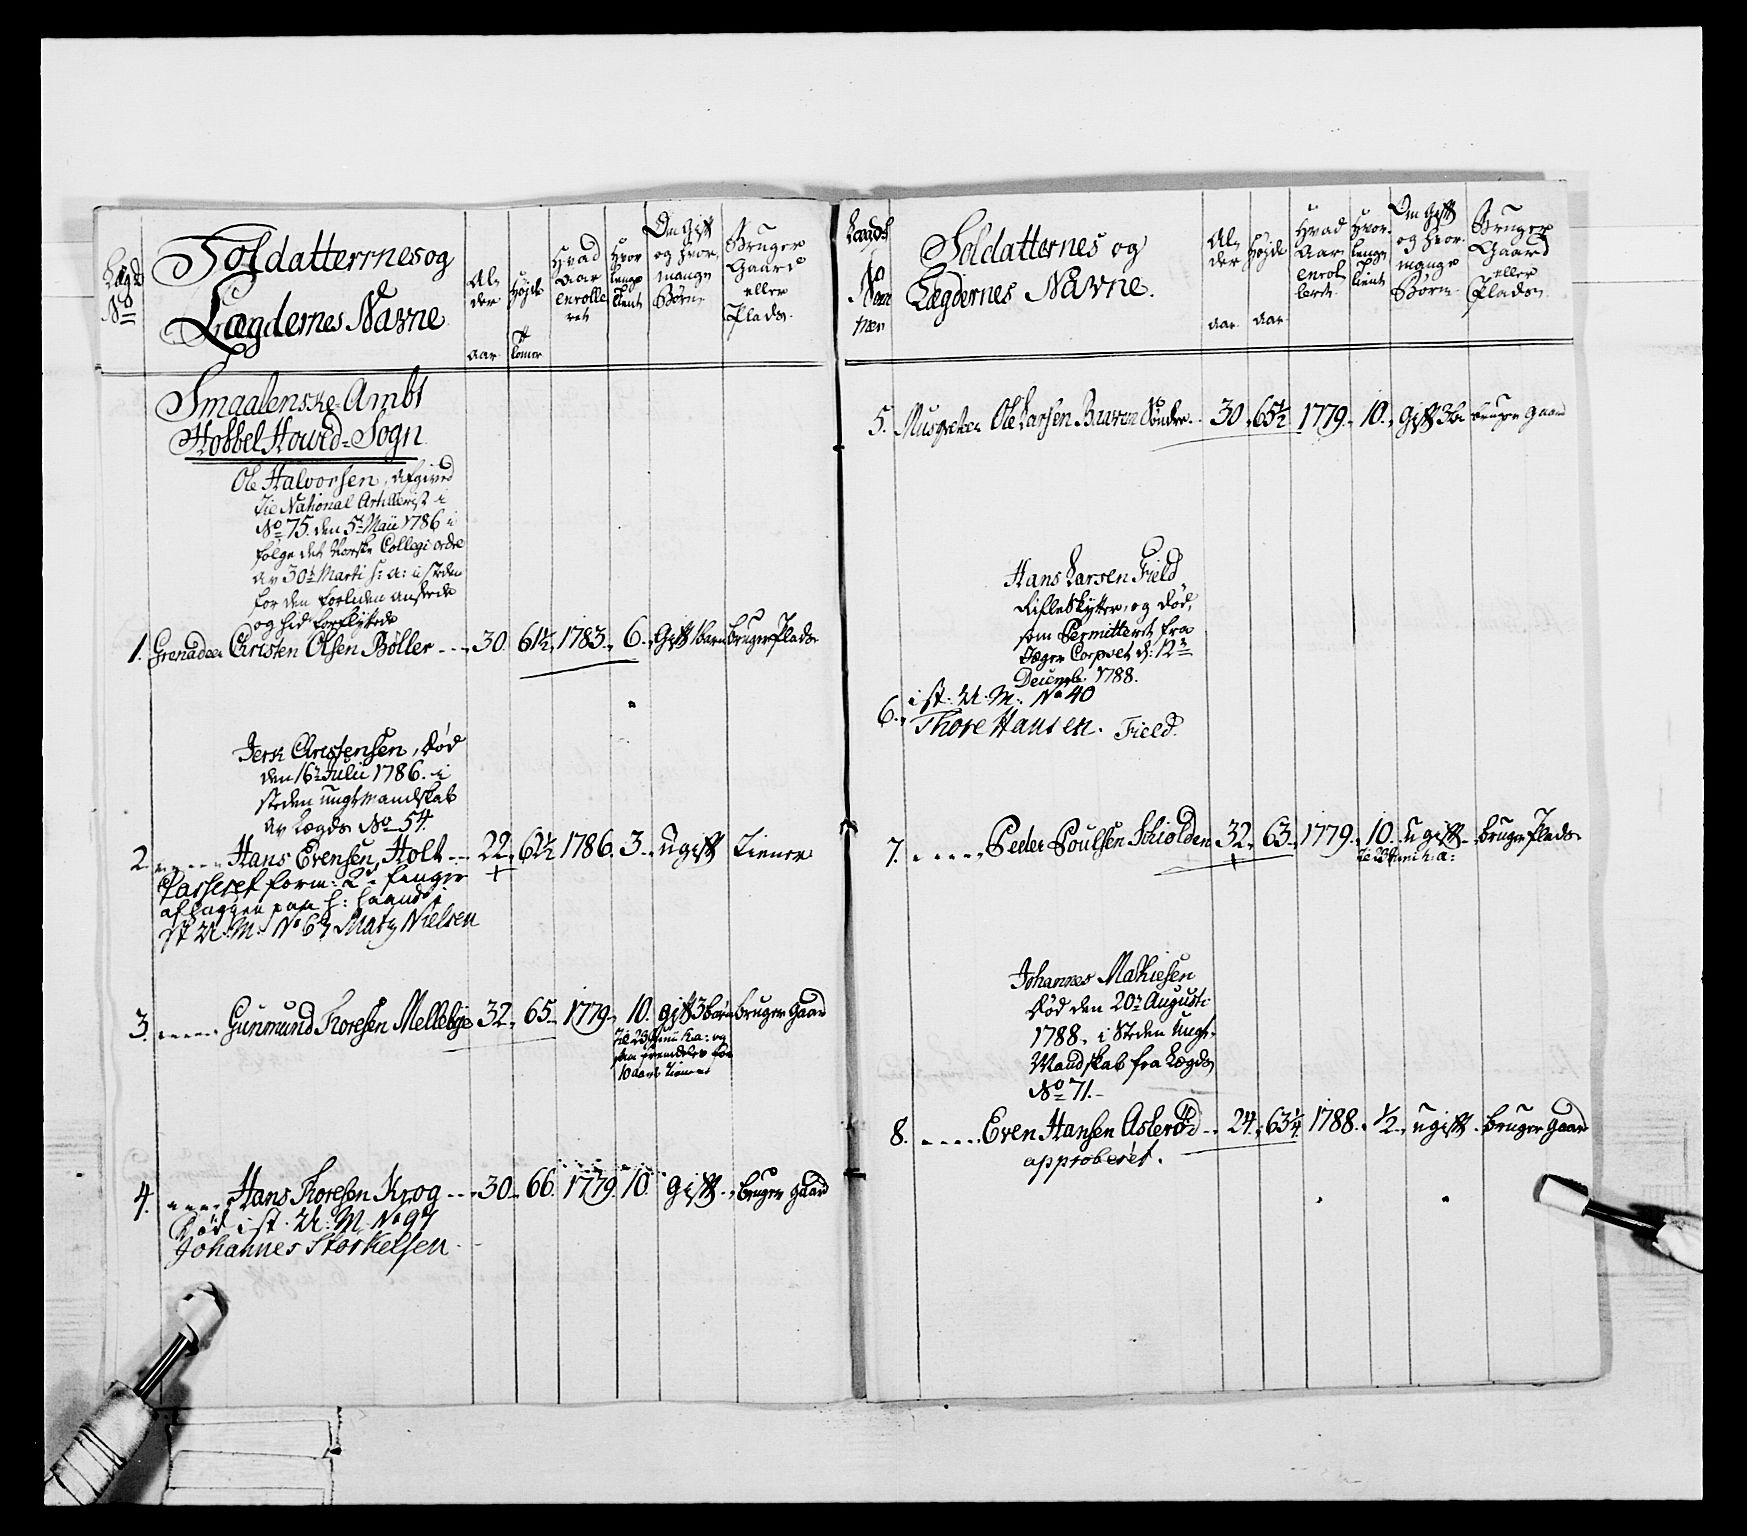 Lægd
No
Soldatternes og
Lægdernes Navne
Al-
der
aar
Højde
tomer
Hvad
Aar
enrolle
ret
Hvor
længe
tient
Om Gift
og hvor
mange
Børn
Bruger
Gaard
eller
Plads
Smaalenske Ambt
Hobbel Howed-Sogn
Ole Halvorsen, afgived
til National Artillerist i
No 75. den 5t Maii 1786 i
følge det Norske Collegi ordre
av 30t Marti h: a: i steden
for den forliden anførde
og hid forflytede
1. Grenadeer Christen Olsen Bøller 30. 61½ 1783. 6. Gift 1 barn bruger Plads
Jern Christensen, død
den 16t Julii 1786. i
steden ungt Mandskab
av Lægds No 54.
2. Hans Evensen Holt 22. 62½ 1786. 3. ugift tiener
Casseret form: 2de fenger
afhuggen paa h: haand i
st U: M: No 67 Matz Nielsen
3. Gunmund Thoresen Mellebye 32. 65. 1779. 10. gift 3 børn bruger gaard
til 23 Junii h: a: og
fremdeles for
10 aars tieneste
4. Hans Thoresen Krog 30. 66. 1779. 10. gift bruger gaard
Død i st. U: M. No 97
Johannes Storkelsen
Lægds
No
Num
mer
Soldatternes og
Lægdernes Navne.
Al-
der
aar
Højde
aar
Hvad
Aar
enrol-
lert
Hvor
længe
tient
Om Gift
og hvor
mange
Børn
Bruger
Gaard
eller
Plads
5. Musqueteer Ole Larsen Søndre 30. 65½ 1779. 10. gift 3 bø bruger gaard
Hans Larsen Field
Rifleskytter, og død,
som Permitteret fra
Jæger Corpset d: 12te
Decemb. 1788.
6. i st. U. M: No 40
Thore Hansen. Field.
7. Peder Poulsen Skiolden 32. 63. 1779. 10. ugift bruger Plads
til 23 Junii h: a:
Johannes Mathiesen
død den 20t Augusti
1788. i Steden Ungt
Mandskab fra Lægds
No 71.
8. Even Hansen Asterød 24. 63¼ 1788. ½ ugift bruger gaard
approberet.